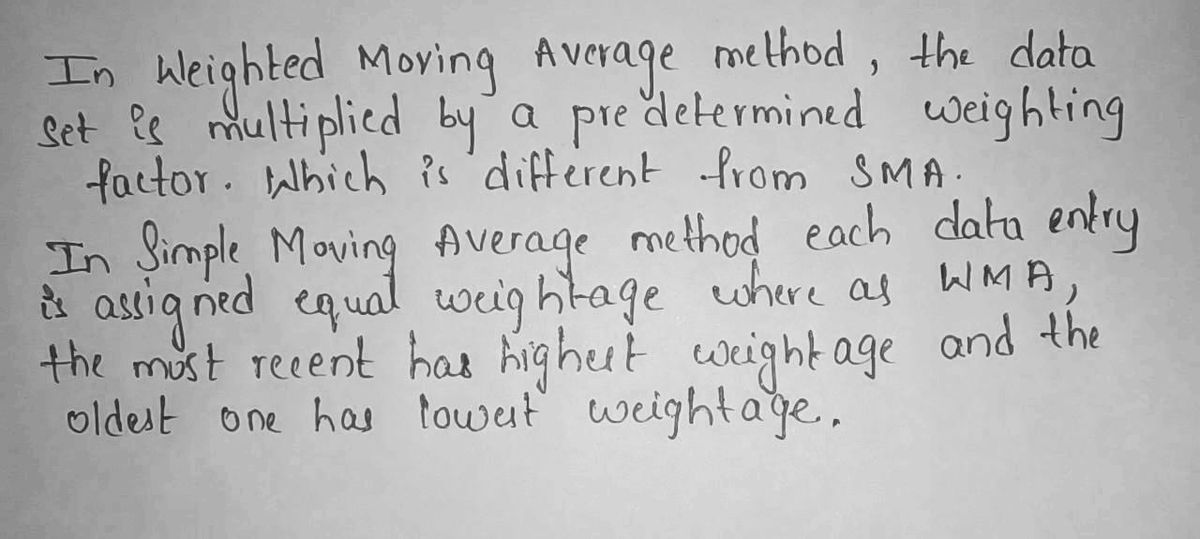 In Weighted Moving Average method, the data
set is multiplied by a pre determined weighting
factor. Which is different from SMA.
In Simple Moving Average method each data entry
is assigned equal weightage where as WMA,
the most recent has highest weightage and the
oldest one has lowest weightage.